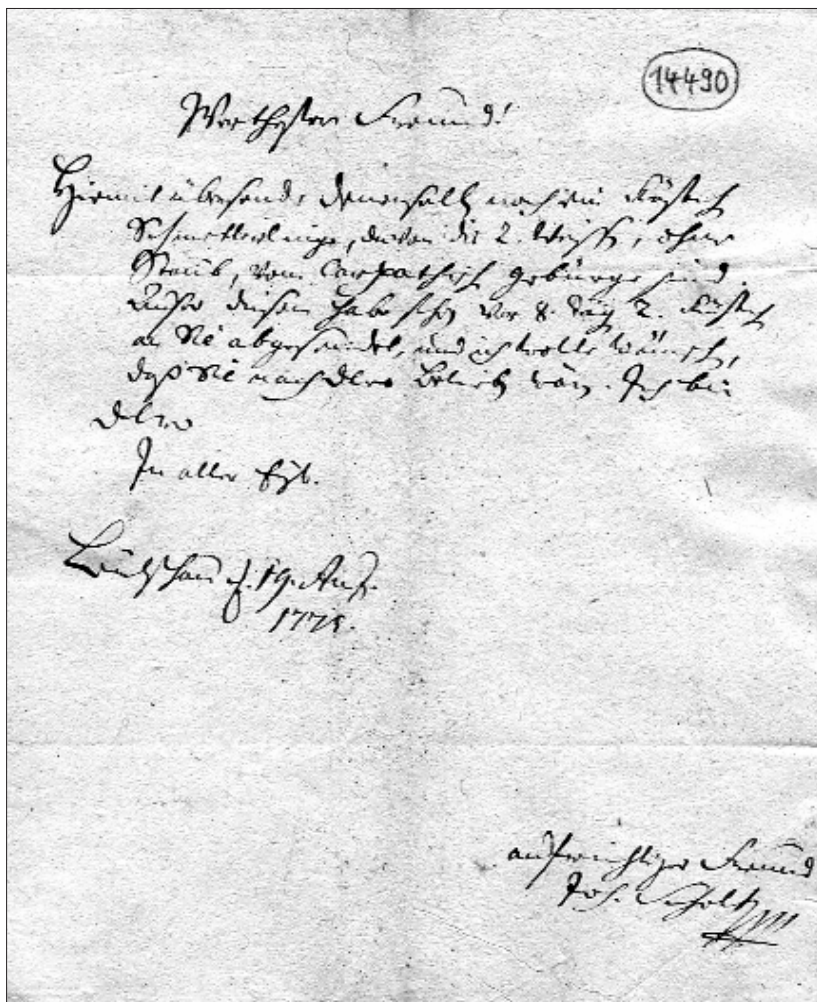 14490
Werthester Freund!
Hiermit übersende denenselb noch ein Kästch
Schmetterlinge, davon die 2. weiss, ohne
Staub, vom Carpathisch gebürge sind.
Ausser diesen habe schon vor 8. Tag 2. Kästch
an Sie abgesendet, und ich wolte wünsch,
daß Sie nach dero Belieb wär. Ich bin
dero
In aller Eyl.
Leutschau d. 19. Aug.
1775.
aufrichtiger Freund
Joh. Scholtz